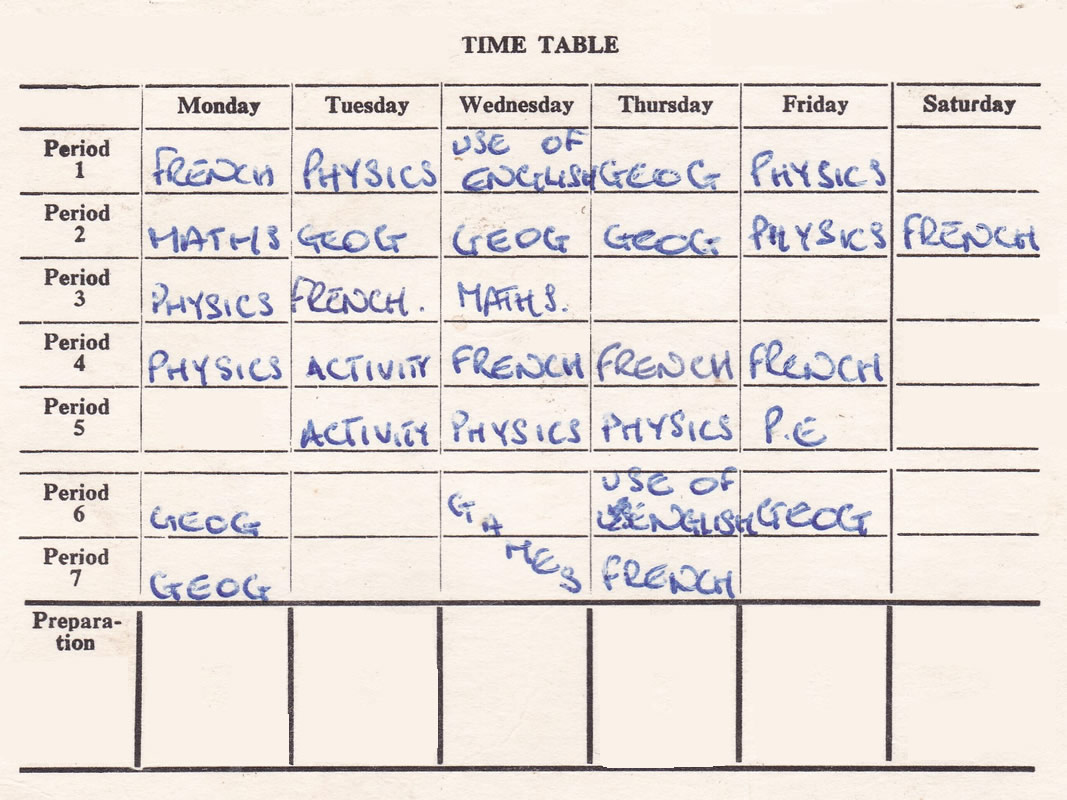 TIME TABLE
Monday Tuesday Wednesday Thursday Friday Saturday
Period 1 FRENCH PHYSICS USE OF ENGLISH GEOG PHYSICS
Period 2 MATHS GEOG GEOG GEOG PHYSICS FRENCH
Period 3 PHYSICS FRENCH. MATHS.
Period 4 PHYSICS ACTIVITY FRENCH FRENCH FRENCH
Period 5 ACTIVITY PHYSICS PHYSICS P.E
Period 6 GEOG GAMES USE OF ENGLISH GEOG
Period 7 GEOG FRENCH
Prepara-
tion